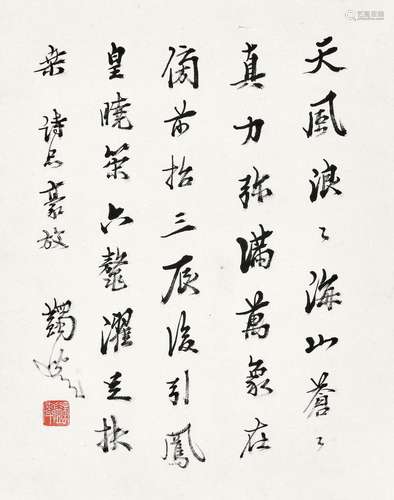 天風浪〻海山蒼〻
真力弥满萬象在
傍前招三辰後引鳳
皇曉策六鼇濯足扶
桒 詩品豪放 蠲叟